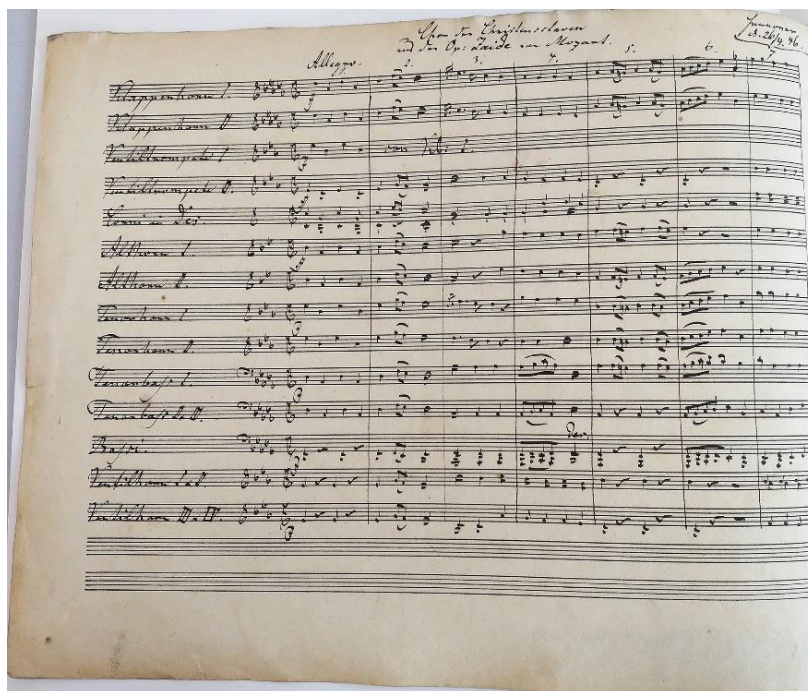 Chor der Christensclaven
aus der Op: Zaide von Mozart.
d. 26/4. 46.
Allegro.
2. 3. 4. 5. 6. 7.
Klappenhorn I.
Klappenhorn II.
Ventiltrompete I
Ventiltrompete II.
Corni in Des.
Althorn I.
Althorn II.
Tenorhorn I.
Tenorhorn II.
Tenorbass I.
Tenorbass II.
Bassi.
Ventilhorn I et II.
Ventilhorn III et IV.